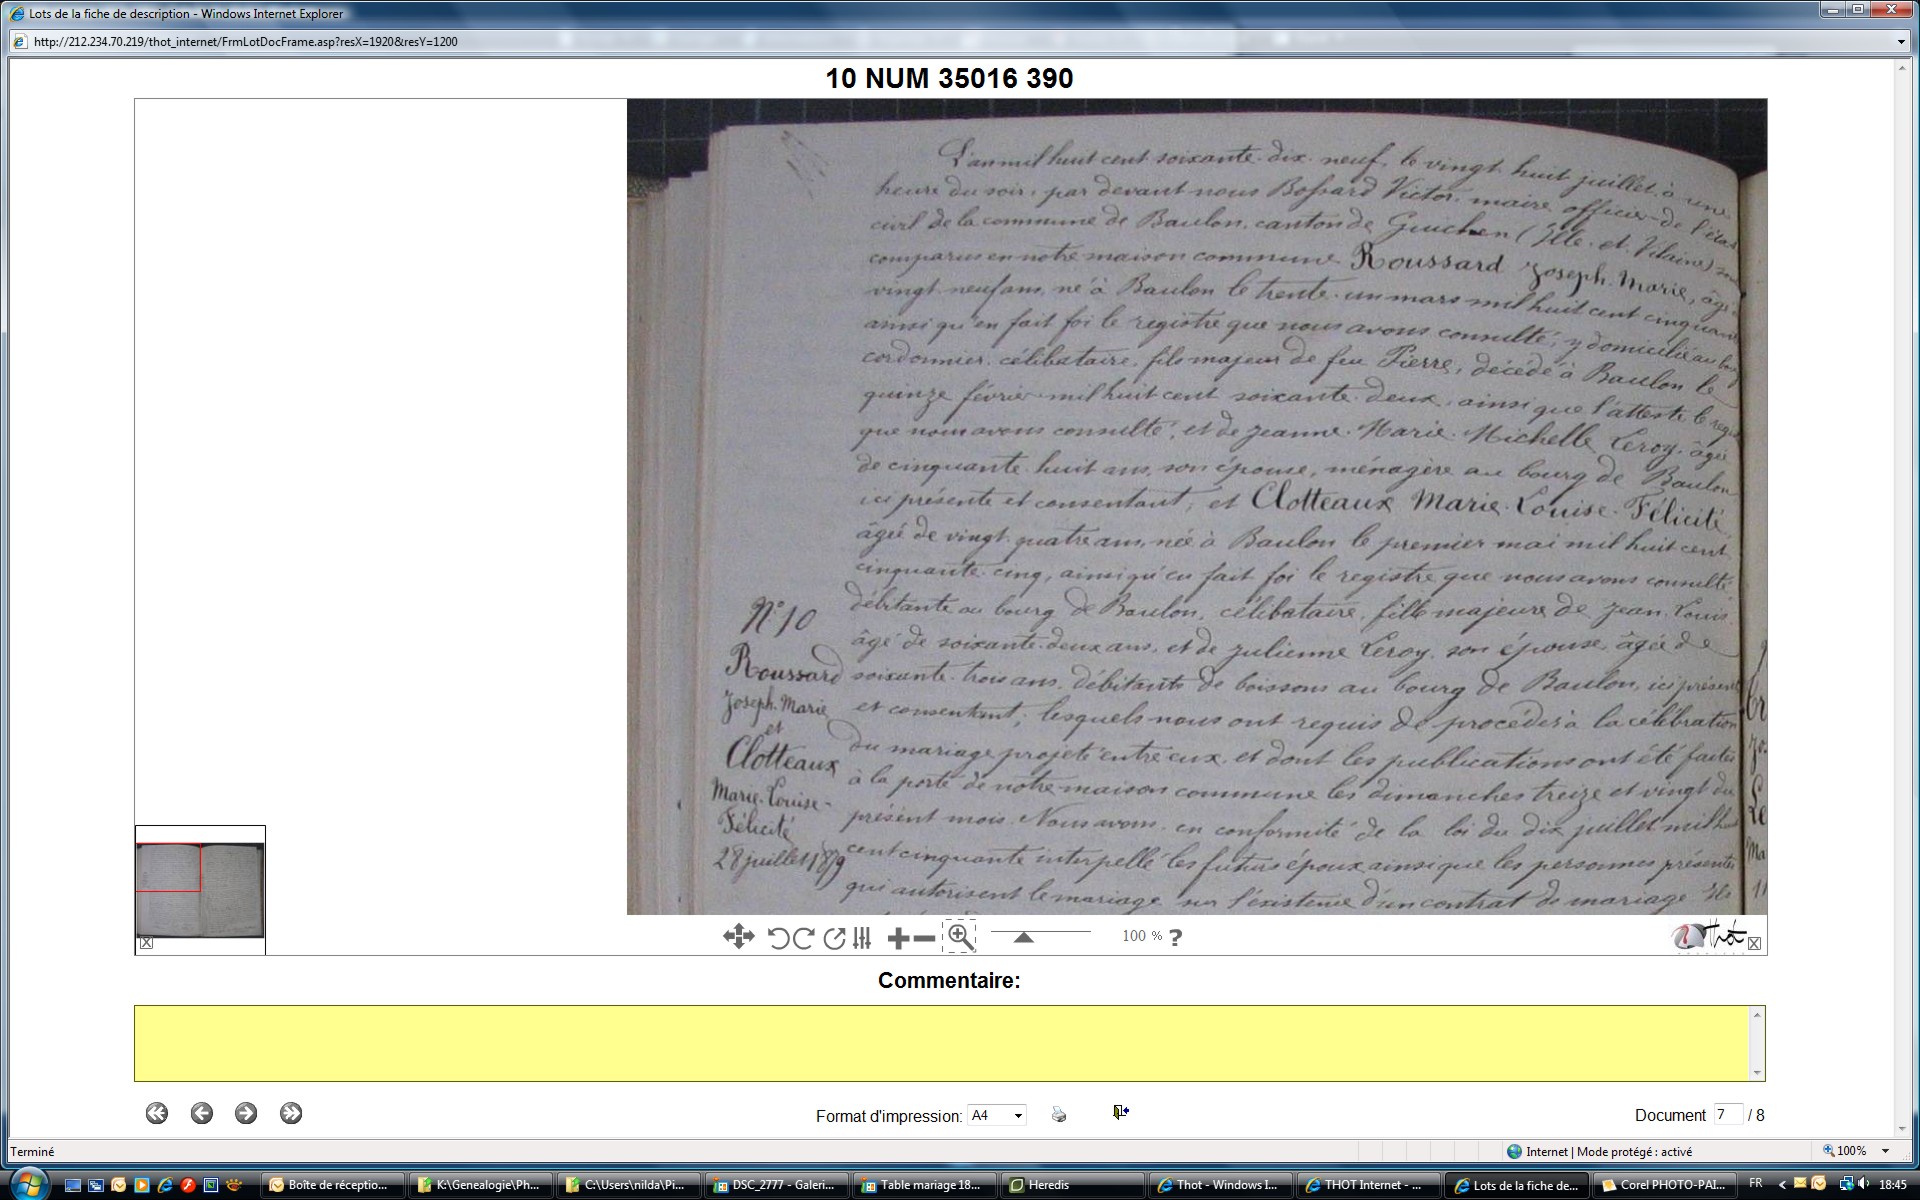 Lots de la fiche de description - Windows Internet Explorer
http://212.234.70.219/thot_internet/FrmLotDocFrame.asp?resX=1920&resY=1200
10 NUM 35016 390
L'an mil huit cent soixante-dix-neuf, le vingt huit juillet à une
heure du soir, par devant nous Bossard Victor, maire officier de l'état
civil de la commune de Baulon, canton de Guichen (Ille-et-Vilaine) sont
comparus en notre maison commune Roussard Joseph-Marie, âgé
vingt-neuf ans, né à Baulon le trente-un mars mil huit cent cinquante
ainsi qu'en fait foi le registre que nous avons consulté, y domicilié au bourg
cordonnier, célibataire, fils majeur de feu Pierre, décédé à Baulon le
quinze février mil huit cent soixante-deux, ainsi que l'atteste le
que nous avons consulté, et de Jeanne-Marie-Michelle Leroy, âgée
de cinquante-huit ans, son épouse, ménagère au bourg de Baulon
ici présente et consentant, et Clotteaux Marie-Louise-Félicité,
âgée de vingt-quatre ans, née à Baulon le premier mai mil huit cent
cinquante-cinq, ainsi qu'en fait foi le registre que nous avons consulté
débitante au bourg de Baulon, célibataire, fille majeure de Jean-Louis
âgé de soixante-deux ans, et de Julienne Leroy, son épouse, âgée de
soixante-trois ans, débitants de boissons au bourg de Baulon, ici présents
et consentant; lesquels nous ont requis de procéder à la célébration
du mariage projeté entre eux et dont les publications ont été faites
à la porte de notre maison commune les dimanches treize et vingt du
présent mois. Nous avons, en conformité de la loi du dix juillet mil huit
cent cinquante interpellé les futurs époux ainsi que les personnes présentes
qui autorisent le mariage sur l'existence d'un contrat de mariage. Ils
N° 10
Roussard
Joseph-Marie
et
Clotteaux
Marie-Louise-
Félicité
28 juillet 1879
100 % ?
Thot
Commentaire:
Format d'impression: A4
Document 7 / 8
Terminé
Internet | Mode protégé : activé
100%
Boîte de réceptio...
K:\Genealogie\Ph...
C:\Users\nilda\Pi...
DSC_2777 - Galeri...
Table mariage 18...
Heredis
Thot - Windows I...
THOT Internet - ...
Lots de la fiche de...
Corel PHOTO-PAI...
FR
18:45